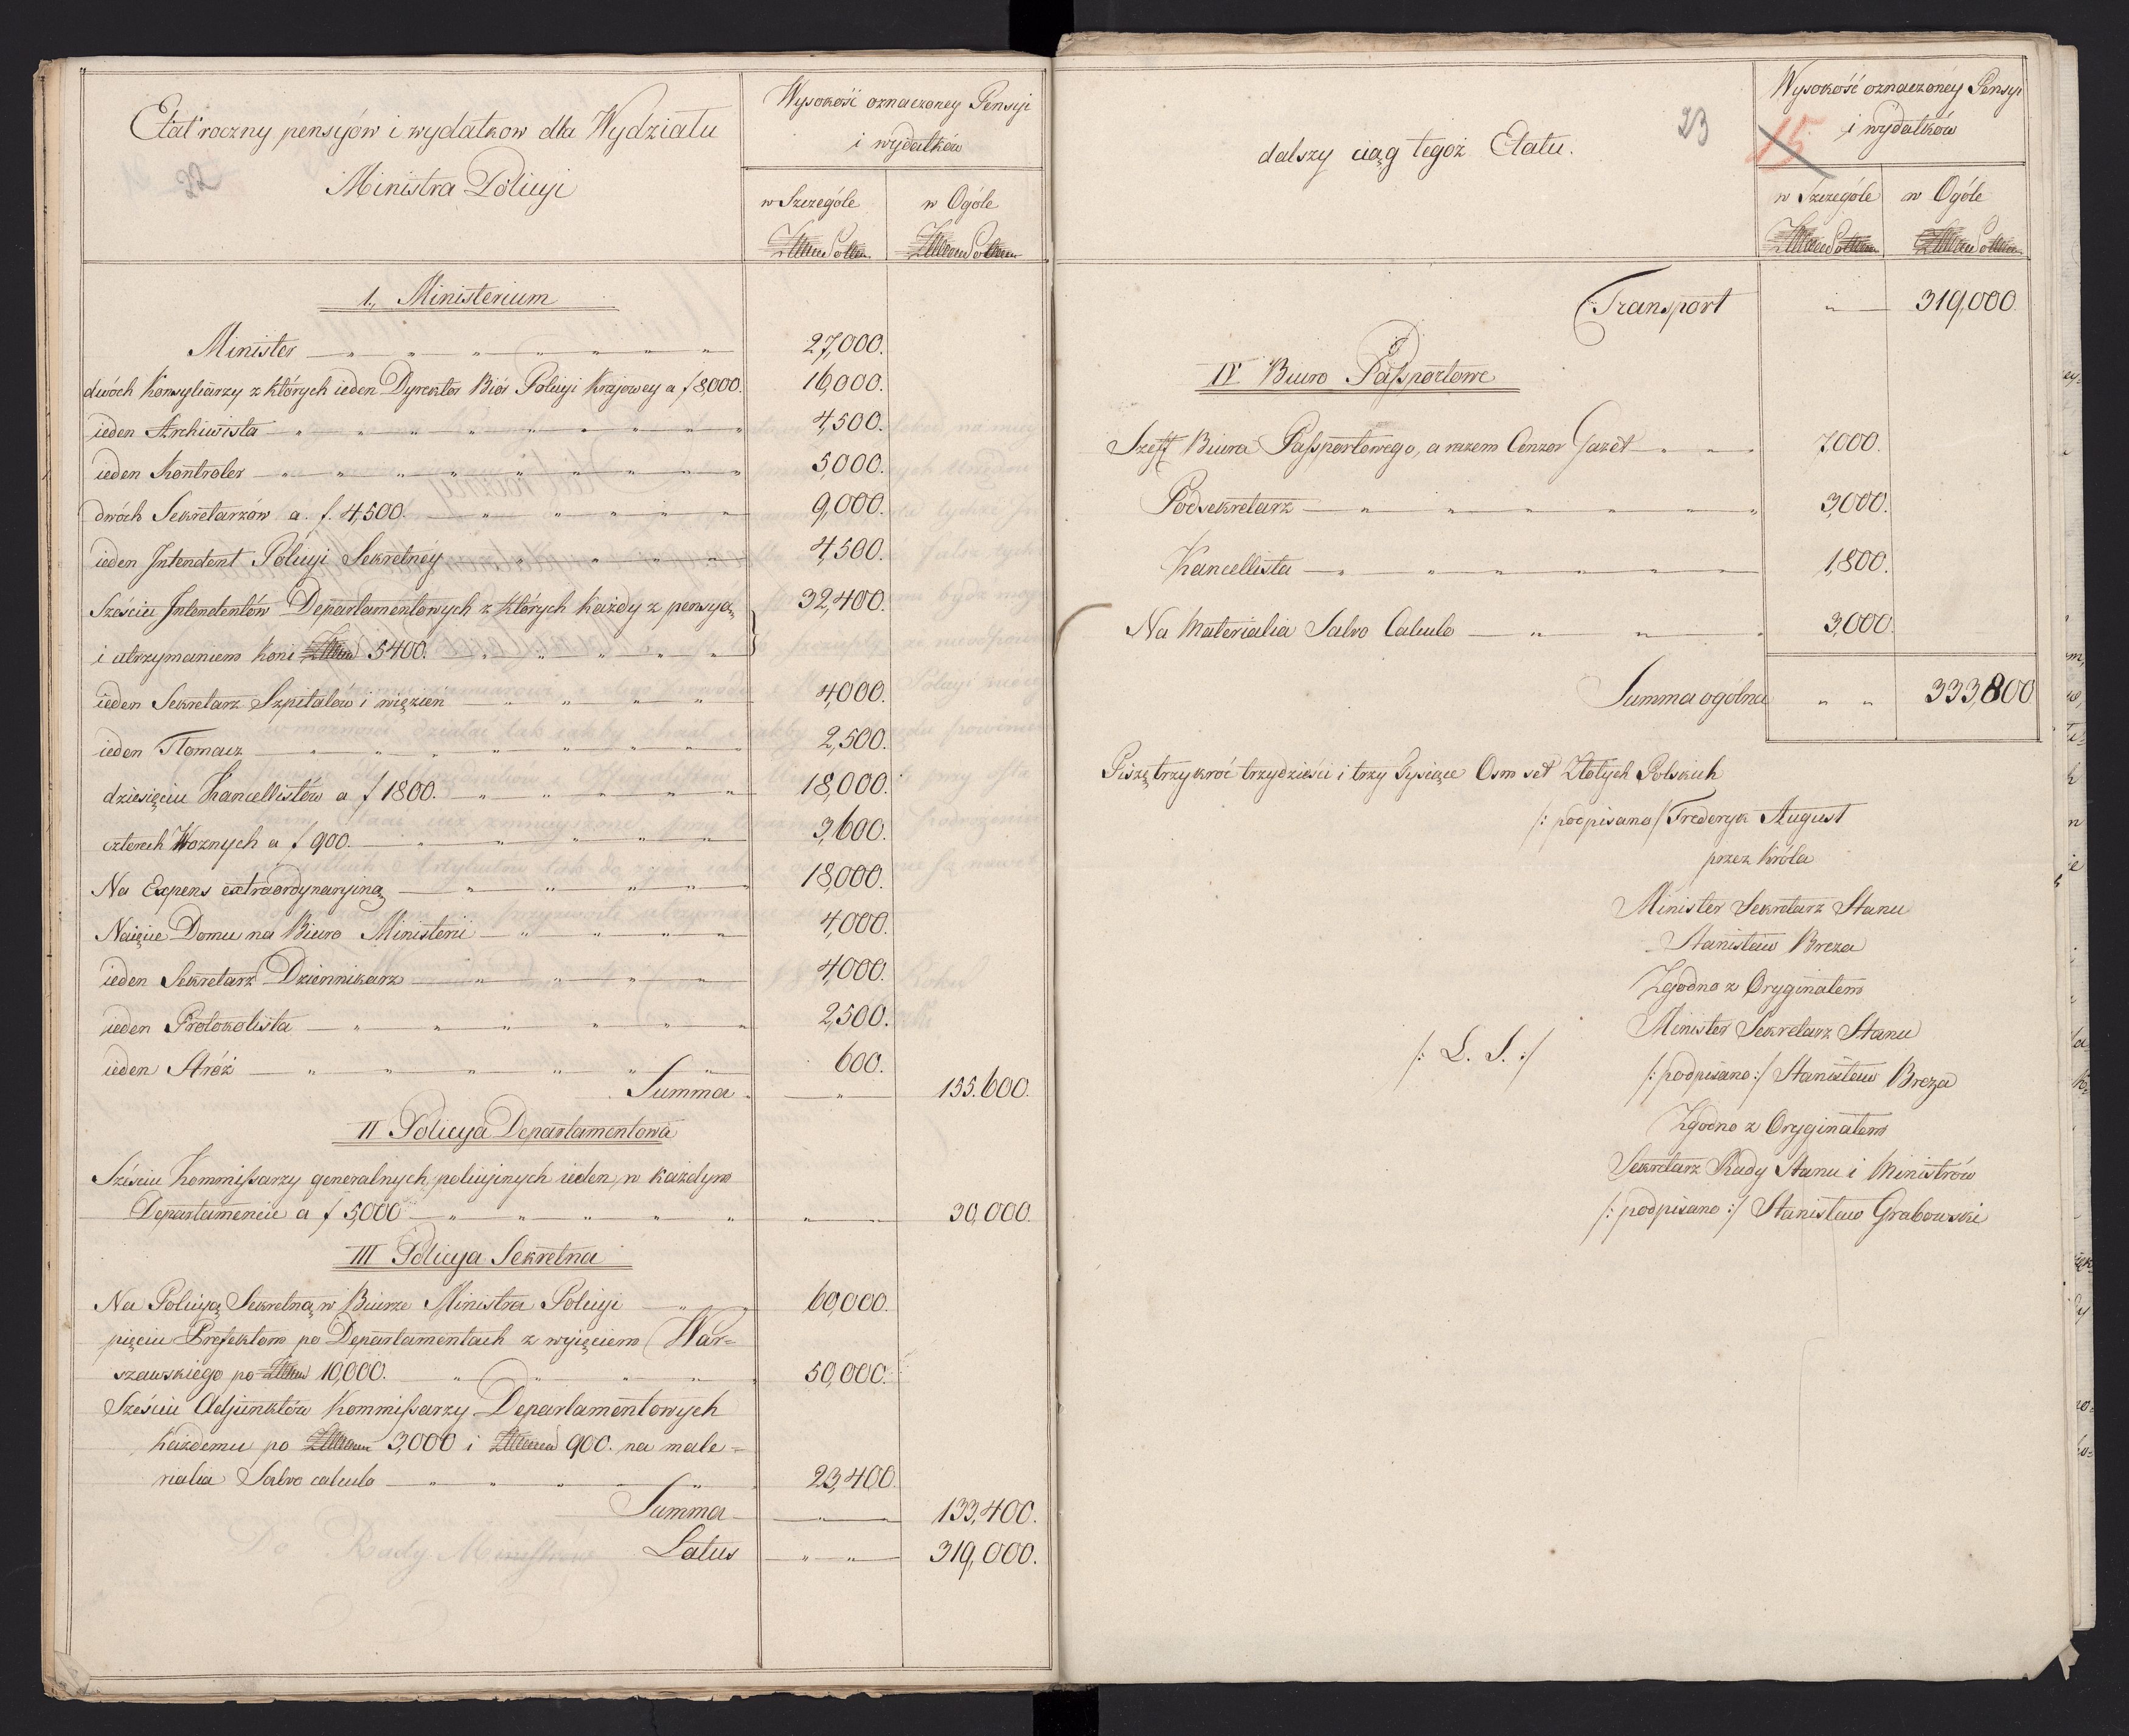 Etat roczny pensyów i wydatkow dla Wydziału
Ministra Policyi
22
Wysokość oznaczoney Pensyi
i wydatków
w Szczególe
w Ogóle
1., Ministerium
Minister 27,000.
dwóch Konsyliarzy z których ieden Dyrektor Biór Policyi Krajowey a f 8,000. 16,000.
ieden Archiwista 4,500.
ieden Kontroler 5,000.
dwóch Sekretarzów á. f. 4,500. 9,000.
ieden Intendent Policyi Sekretnéy 4,500.
Sześciu Intendentów Departamentowych z których każdy z pensyą 32,400.
i utrzymaniem koni 5400.
ieden Sekretarz Szpitalów i więzień 4,000.
ieden Tłomacz 2,500.
dziesięciu Kancellistów a f 1800. 18,000.
czterech Woznych a f 900. 3,600.
Na Expens extraordynaryiną 18,000.
Naięcie Domu na Biuro Ministerii 4,000.
ieden Sekretarz Dziennikarz 4,000.
ieden Protokolista 2,500.
ieden Stróż 600.
Summa 155.600.
II Policya Departamentowa
Sześciu Kommißarzy generalnych policyinych ieden w każdym
Departamencie a f 5,000 30,000.
III Policya Sekretna
Na Policyą Sekretną w Biurze Ministra Policyi 60,000.
pięciu Prefektom po Departamentach z wyięciem War=
szawskiego po 10,000. 50,000.
Sześciu Adjunktów Kommißarzy Departamentowych
każdemu po 3,000 i 900. na mate=
rialia Salvo calculo 23,400.
Summa 133,400.
Latus 319,000.
Do Rady Ministrów
dalszy ciąg tegoż Etatu.
23
15
Wysokość oznaczonéy Pensyi
i wydatków
w Szczególe
w Ogóle
Transport 319,000.
IV Biuro Paßportowe
Szeff Biura Paßportowego, a razem Cenzor Gazet 7,000.
Podsekretarz 3,000.
Kancellista 1,800.
Na Materialia Salvo Calculo 3,000.
Summa ogólna 333,800
Piszę trzykroć trzydzieści i trzy Tysiące Osm set Złotych Polskich
/: podpisano / Frederyk August
przez Króla
Minister Sekretarz Stanu
Stanisław Breza
Zgodno z Oryginałem
Minister Sekretarz Stanu
/: L. S. :/
/: podpisano :/ Stanisław Breza
Zgodno z Oryginałem
Sekretarz Rady Stanu i Ministrów
/: podpisano :/ Stanisław Grabowski